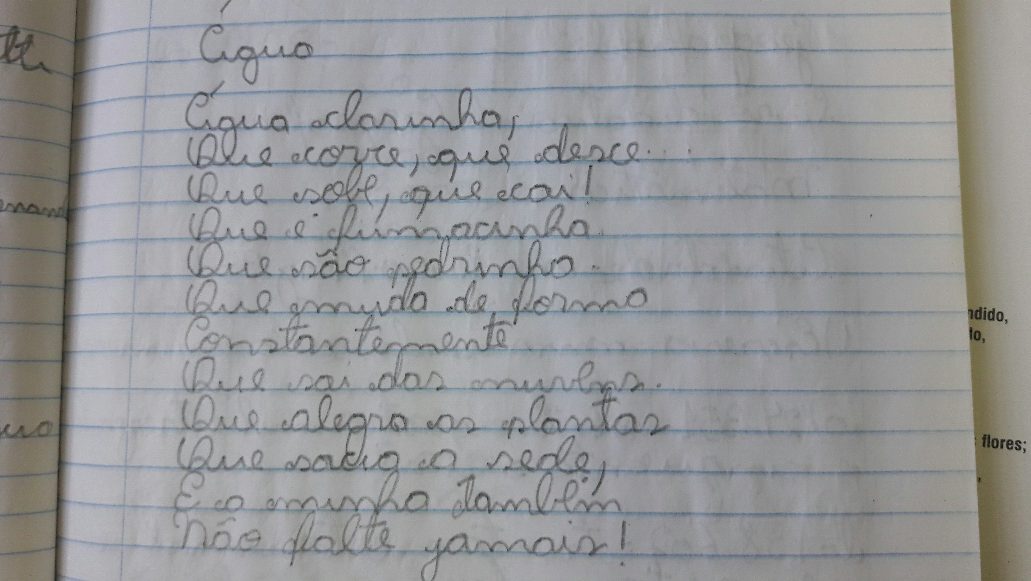 Água
Água clarinha,
Que corre, que desce...
Que sobe, que cai!
Que é fumacinha.
Que são pedrinha.
Que muda de forma
Constantemente
Que sai das nuvens.
Que alegra as plantas
Que sacia a sede,
E a minha também
Não falte jamais!
ndido,
do,
flores;